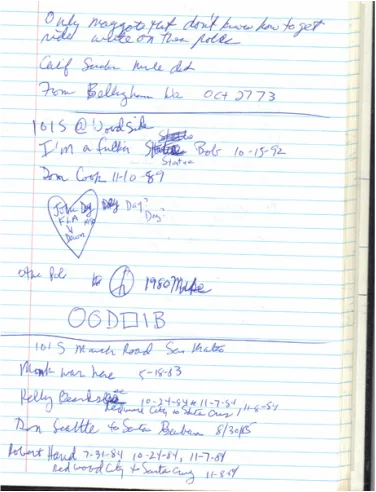 Only maggots that don't know how to get
rides write on these poles
Calif
From Bellingham Wa Oct 27 73
101 S @ Woodside
I'm a fuckin Statue Bob 10-15-92
Statue
Don Cook 11-10-89
John Day Day Day?
FLA Day?
Dawn
other Pole 1980 Mike
OGD□IB
101 S Marsh Road San Mateo
Monk was here 5-18-83
Kelly 10-24-84 11-7-84
Redwood City to Santa Cruz, 11-8-84
Don Seattle to Santa Barbara 8/30/85
Robert Hand 7-31-84 10-24-84, 11-7-84
Redwood City to Santa Cruz 11-8-84